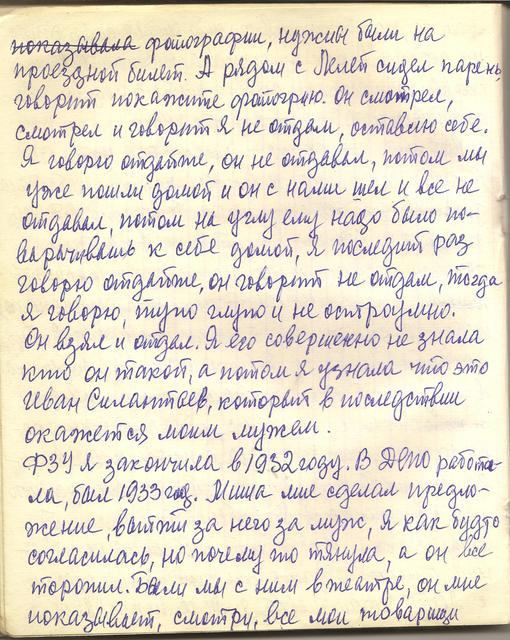 показывала фотографии, нужны были на
проездной билет. А рядом с Лёлей сидел парень,
говорит покажите фотогрию. Он смотрел,
смотрел и говорит я не отдам, оставлю себе.
Я говорю отдайте, он не отдавал, потом мы
уже пошли домой и он с нами шел и все не
отдавал, потом на углу ему надо было по-
варычивать к себе домой, я последний раз
говорю отдайте, он говорит не отдам, тогда
я говорю, тупо глупо и не остроумно.
Он взял и отдал. Я его совершенно не знала
кто он такой, а потом я узнала что это
Иван Силантьев, который в последствии
окажется моим мужем.
ФЗУ я закончила в 1932 году. В Депо работа-
ла, был 1933 год. Миша мне сделал предло-
жение, выйти за него за муж, я как будто
согласилась, но почему то тянула, а он все
торопил. Были мы с ним в театре, он мне
показывает, смотри, все мои товарищи